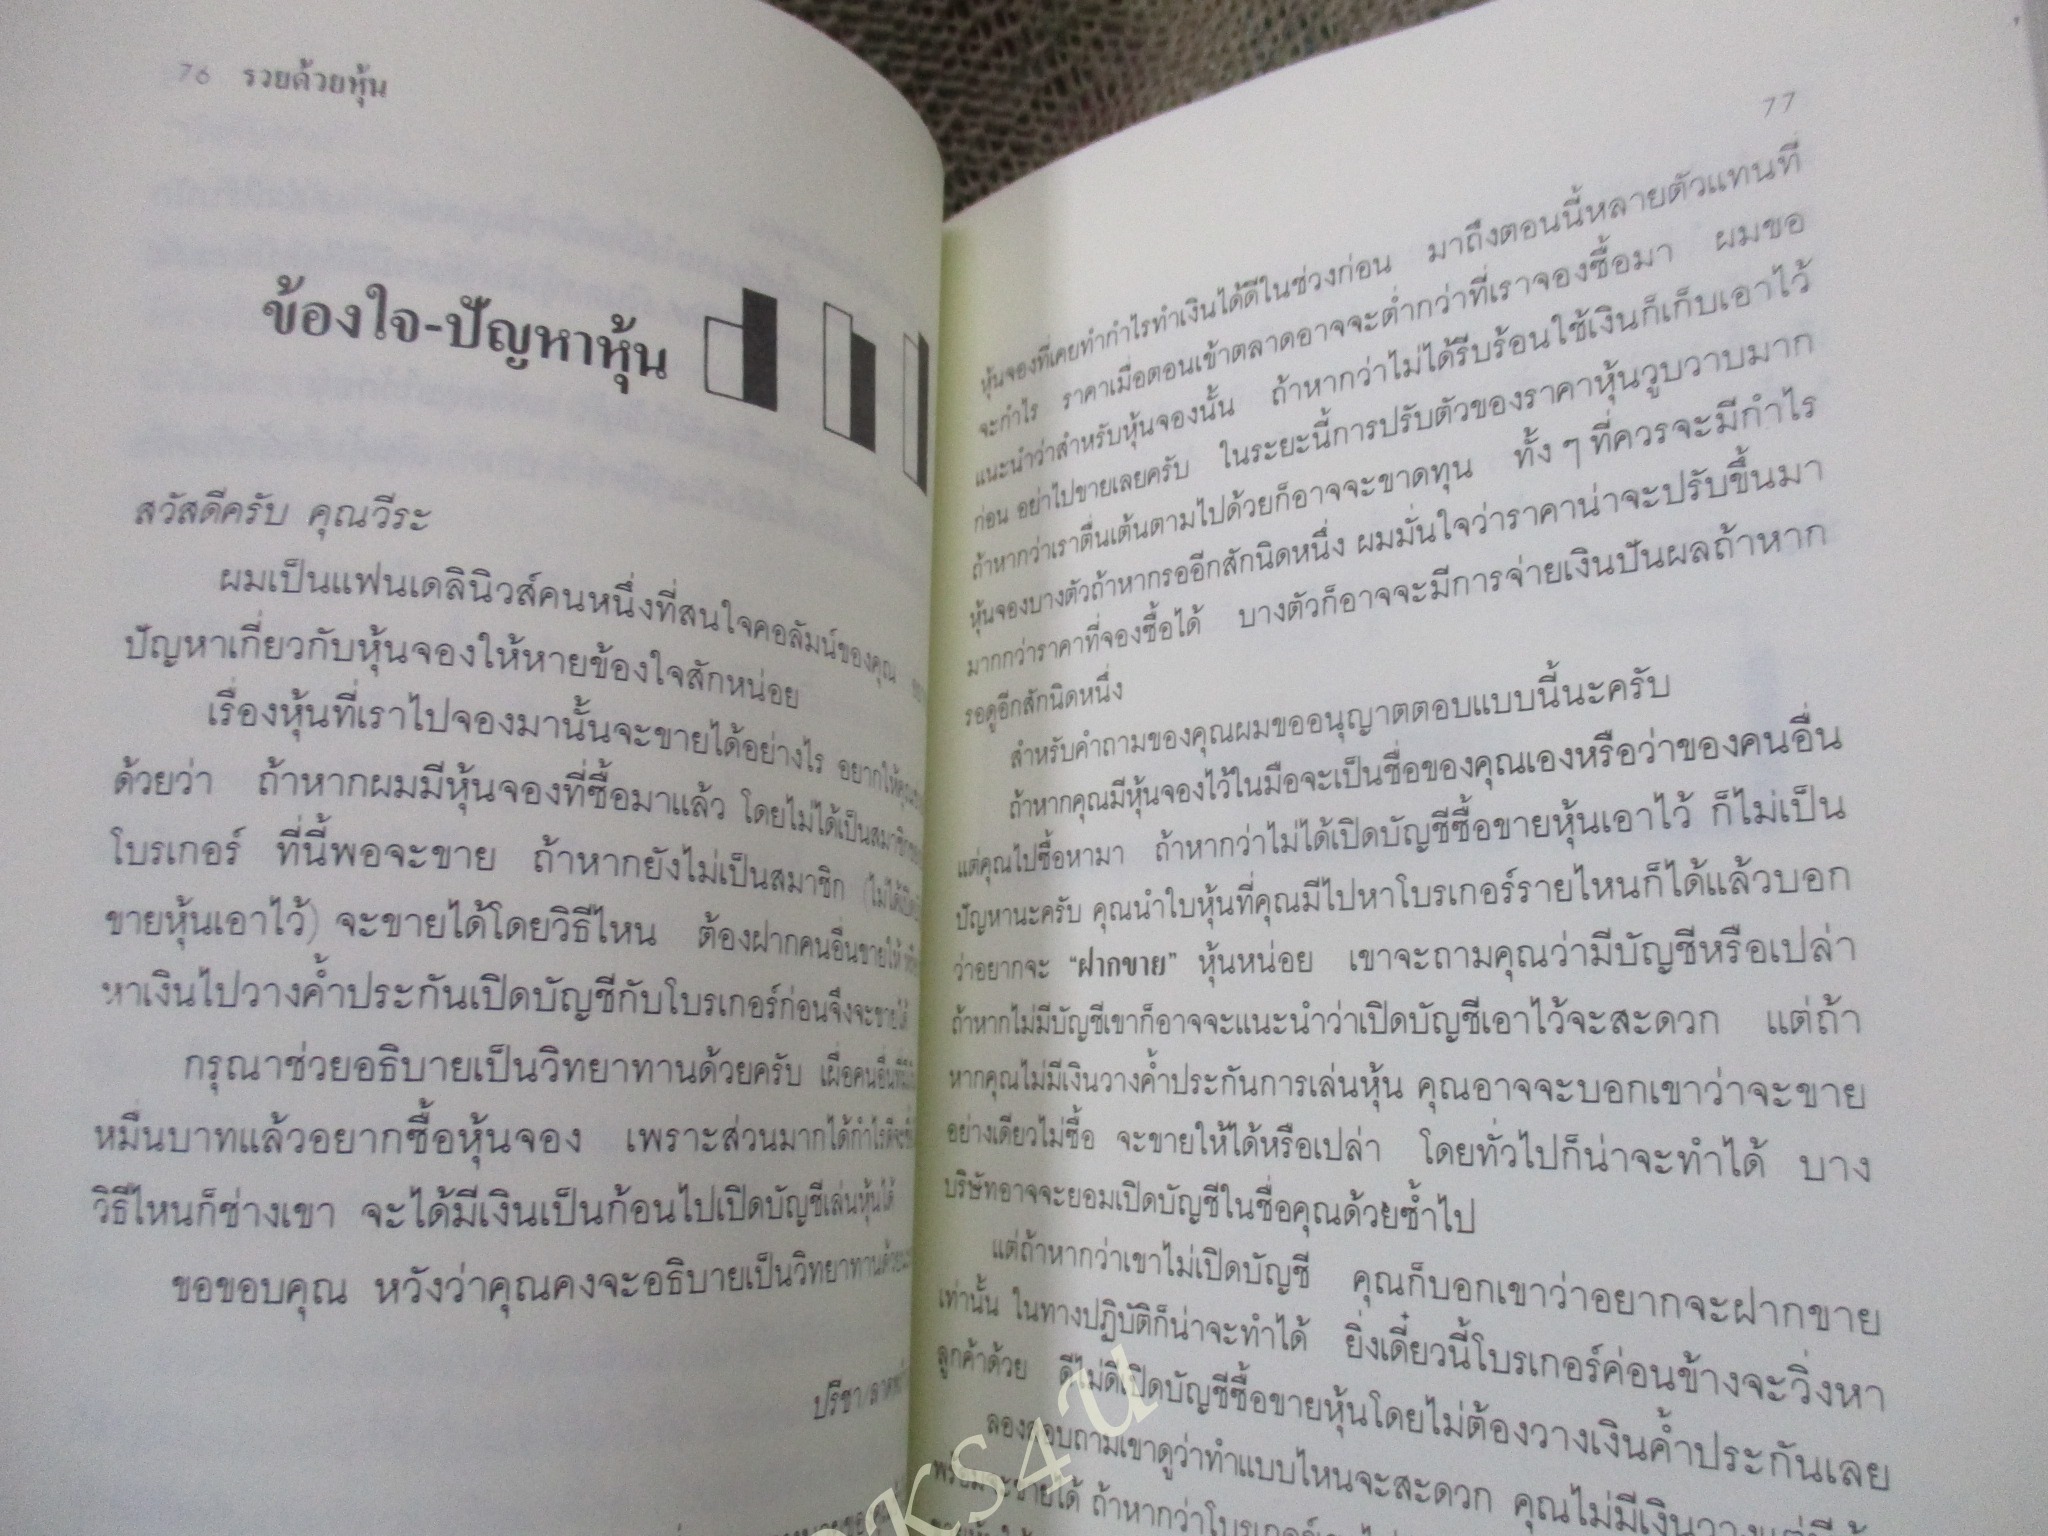 76 รวยด้วยหุ้น
ข้องใจ-ปัญหาหุ้น
สวัสดีครับ คุณวีระ
ผมเป็นแฟนเดลินิวส์คนหนึ่งที่สนใจคอลัมน์ของคุณ
ปัญหาเกี่ยวกับหุ้นจองให้หายข้องใจสักหน่อย
เรื่องหุ้นที่เราไปจองมานั้นจะขายได้อย่างไร อยากให้คุณ
ด้วยว่า ถ้าหากผมมีหุ้นจองที่ซื้อมาแล้ว โดยไม่ได้เป็นสมาชิก
โบรเกอร์ ที่นี้พอจะขาย ถ้าหากยังไม่เป็นสมาชิก (ไม่ได้เปิด
ขายหุ้นเอาไว้) จะขายได้โดยวิธีไหน ต้องฝากคนอื่นขายให้
หาเงินไปวางค้ำประกันเปิดบัญชีกับโบรเกอร์ก่อนจึงจะขายได้
กรุณาช่วยอธิบายเป็นวิทยาทานด้วยครับ เผื่อคนอื่นที่มี
หมื่นบาทแล้วอยากซื้อหุ้นจอง เพราะส่วนมากได้กำไรดี
วิธีไหนก็ช่างเขา จะได้มีเงินเป็นก้อนไปเปิดบัญชีเล่นหุ้นได้
ขอขอบคุณ หวังว่าคุณคงจะอธิบายเป็นวิทยาทานด้วย
ปรีชา/
77
หุ้นจองที่เคยทำกำไรทำเงินได้ดีในช่วงก่อน มาถึงตอนนี้หลายตัวแทนที่
จะกำไร ราคาเมื่อตอนเข้าตลาดอาจจะต่ำกว่าที่เราจองซื้อมา ผมขอ
แนะนำว่าสำหรับหุ้นจองนั้น ถ้าหากว่าไม่ได้รีบร้อนใช้เงินก็เก็บเอาไว้
ก่อน อย่าไปขายเลยครับ ในระยะนี้การปรับตัวของราคาหุ้นวูบวาบมาก
ถ้าหากว่าเราตื่นเต้นตามไปด้วยก็อาจจะขาดทุน ทั้ง ๆ ที่ควรจะมีกำไร
หุ้นจองบางตัวถ้าหากรออีกสักนิดหนึ่ง ผมมั่นใจว่าราคาน่าจะปรับขึ้นมา
มากกว่าราคาที่จองซื้อได้ บางตัวก็อาจจะมีการจ่ายเงินปันผลถ้าหาก
รอดูอีกสักนิดหนึ่ง
สำหรับคำถามของคุณผมขออนุญาตตอบแบบนี้นะครับ
ถ้าหากคุณมีหุ้นจองไว้ในมือจะเป็นชื่อของคุณเองหรือว่าของคนอื่น
แต่คุณไปซื้อหามา ถ้าหากว่าไม่ได้เปิดบัญชีซื้อขายหุ้นเอาไว้ ก็ไม่เป็น
ปัญหานะครับ คุณนำใบหุ้นที่คุณมีไปหาโบรเกอร์รายไหนก็ได้แล้วบอก
ว่าอยากจะ “ฝากขาย” หุ้นหน่อย เขาจะถามคุณว่ามีบัญชีหรือเปล่า
ถ้าหากไม่มีบัญชีเขาก็อาจจะแนะนำว่าเปิดบัญชีเอาไว้จะสะดวก แต่ถ้า
หากคุณไม่มีเงินวางค้ำประกันการเล่นหุ้น คุณอาจจะบอกเขาว่าจะขาย
อย่างเดียวไม่ซื้อ จะขายให้ได้หรือเปล่า โดยทั่วไปก็น่าจะทำได้ บาง
บริษัทอาจจะยอมเปิดบัญชีในชื่อคุณด้วยซ้ำไป
แต่ถ้าหากว่าเขาไม่เปิดบัญชี คุณก็บอกเขาว่าอยากจะฝากขาย
เท่านั้น ในทางปฏิบัติก็น่าจะทำได้ ยิ่งเดี๋ยวนี้โบรเกอร์ค่อนข้างจะวิ่งหา
ลูกค้าด้วย ดีไม่ดีเปิดบัญชีซื้อขายหุ้นโดยไม่ต้องวางเงินค้ำประกันเลย
ลองสอบถามเขาดูว่าทำแบบไหนจะสะดวก คุณไม่มีเงินวาง
พร้อมจะขายได้ ถ้าหากว่าโบรเกอร์